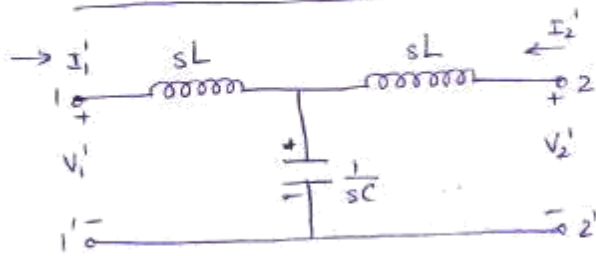 → I₁' sL sL I₂' ←
1 2
+ +
V₁' + 1/sC V₂'
-
1' - - 2'